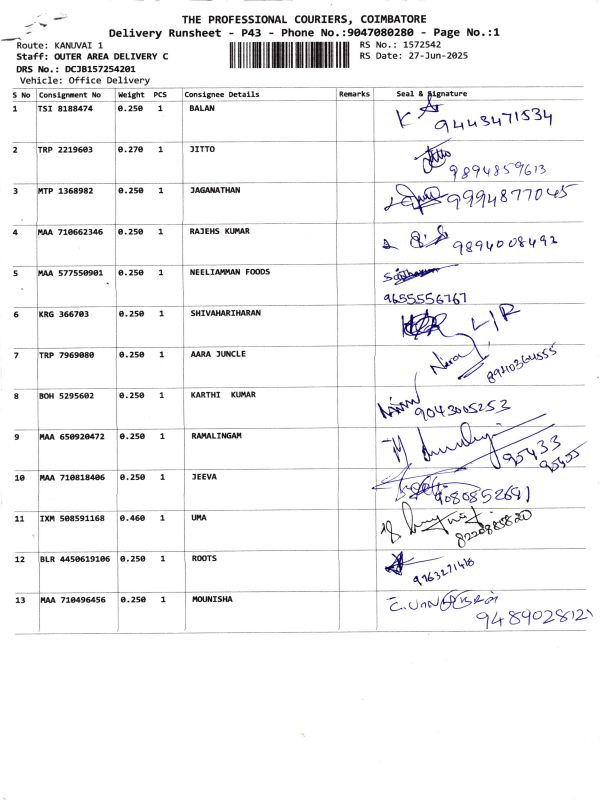 THE PROFESSIONAL COURIERS, COIMBATORE
Delivery Runsheet - P43 - Phone No.:9047080280 - Page No.:1
Route: KANUVAI 1 RS No.: 1572542
Staff: OUTER AREA DELIVERY C RS Date: 27-Jun-2025
DRS No.: DCJB157254201
Vehicle: Office Delivery
S No Consignment No Weight PCS Consignee Details Remarks Seal & Signature
1 TSI 8188474 0.250 1 BALAN
9443471534
2 TRP 2219603 0.270 1 JITTO
9894859613
3 MTP 1368982 0.250 1 JAGANATHAN 9994877045
4 MAA 710662346 0.250 1 RAJEHS KUMAR
9894008492
5 MAA 577550901 0.250 1 NEELIAMMAN FOODS
9655556767
6 KRG 366703 0.250 1 SHIVAHARIHARAN
7 TRP 7969080 0.250 1 AARA JUNCLE
8 BOH 5295602 0.250 1 KARTHI KUMAR
9043005253
9 MAA 650920472 0.250 1 RAMALINGAM
95433
95455
10 MAA 710818406 0.250 1 JEEVA
9080852691
11 IXM 508591168 0.460 1 UMA
8220885820
12 BLR 4450619106 0.250 1 ROOTS
9763271418
13 MAA 710496456 0.250 1 MOUNISHA
9489028121